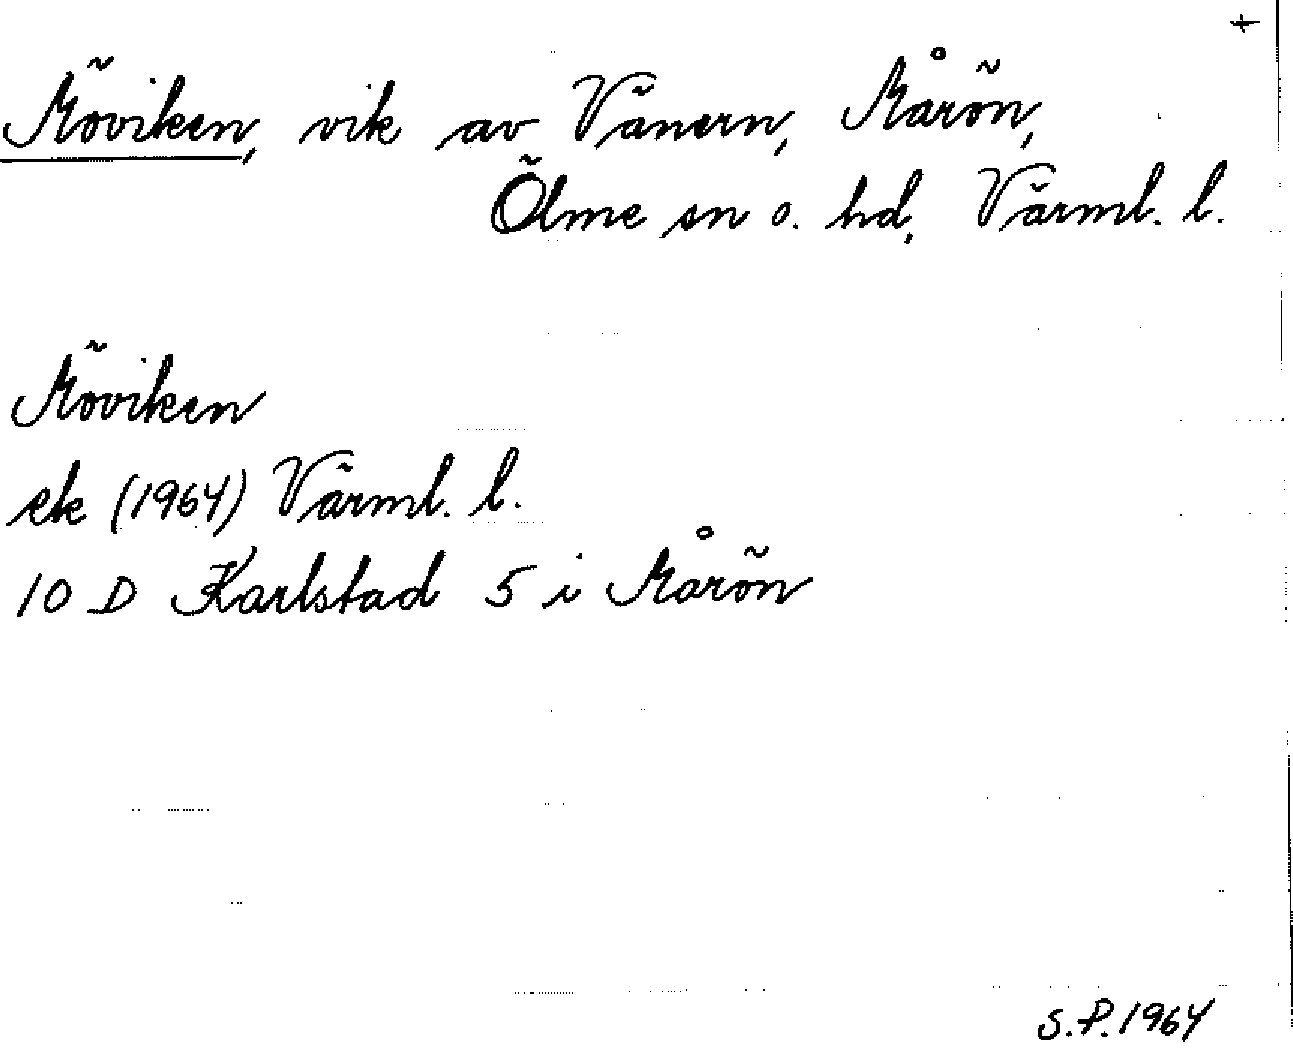 +
Möviken, vik av Vänern, Mårön,
Ölme sn o. hd, Värml. l.
Möviken
ek (1964) Värml. l.
10 D Karlstad 5 i Mårön
S.P. 1964